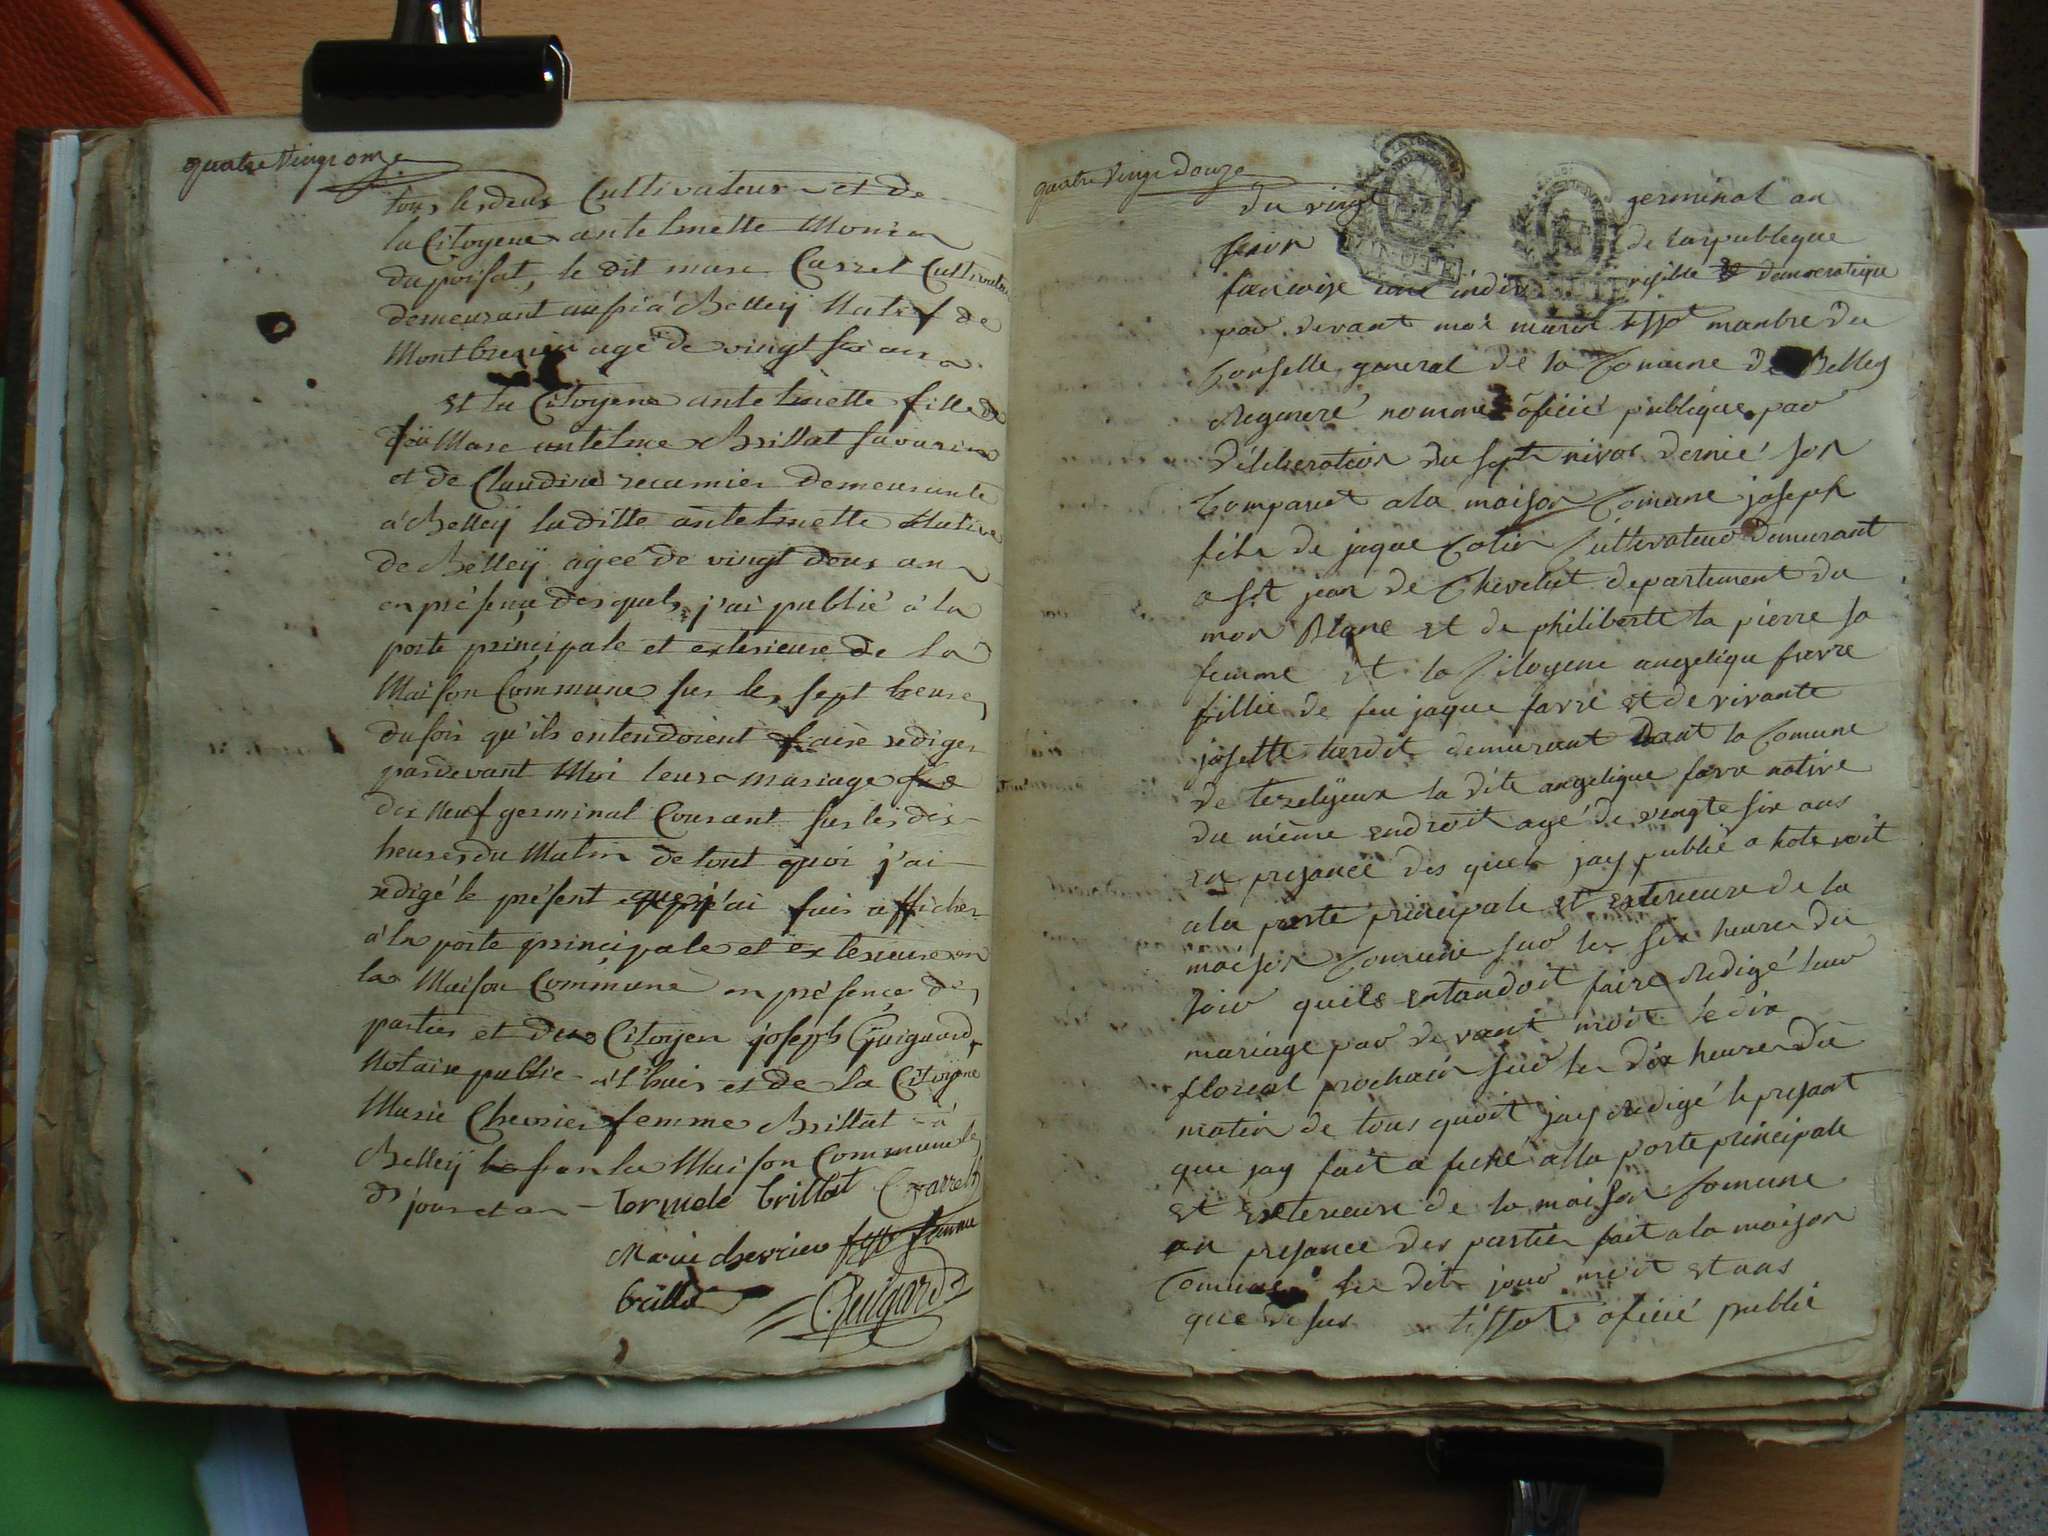 quatre Vingt onze
tous les deux Cultivateurs et de
la Citoyene antelmette Monier
du poisat, le dit marc Carrel Cultivateur
demeurant aussi à Belleÿ Natif de
Montbreziau agé de vingt six ans
et la Citoyene antelmette fille de
feu Marc antelme Brillat Savarin
et de Claudine recamier demeurante
à Belleÿ laditte antelmette Native
de Belleÿ agée de vingt deux ans
en présence desquels j'ai publié à la
porte principale et exterieure de la
Maison Commune sur les sept heures
du soir qu'ils entendoient faire rediger
pardevant Moi leurs mariage
dix Neuf germinal Courant sur les dix
heures du Matin de tout quoi j'ai
redigé le présent que j'ai fais afficher
à la porte principale et exterieure en
la Maison Commune en présence des
parties et du Citoyen joseph Guiguard,
Notaire public d'Huis et de la Citoyene
Marie Chevrier femme Brillat à
Belleÿ en la Maison Commune les
dˢ jour et an tormele brillat Carrel
marie chevrier femme
brillat Guigard
quatre Vingt Douze
du vingt germinal an
segon de la republique
francoise une indivi visible & democratique
par devant moi marin tissot manbre du
Conselle general de la Comune De Belley
Regeneré nomme oficié publique par
Déliberation du sept nivos dernié son
Comparut a la maison Comune joseph
fils de jaque Colin Cultivateur Demurant
a sit jean de Chevelut departement du
mon Blanc et de philiberte la pierre sa
femme et la Citoyene angelique favre
fillie de feu jaque favre et de vivante
josette herdit demurant dant la Comune
de la dite angelique favre native
du même endroit agé de vingte six ans
en presance des quels jay publié a hote voit
a la porte principale et exterieure de la
maison Comune sur les six heures du
soir quils entandoit faire Redigé leur
mariage par de vant moit le dix
floreal prochain sur les dix heures du
matin de tous quoit jay Redigé le presant
que jay fait a fiché alla porte principale
et exterieure de la maison Comune
en presance des partiés fait a la maison
Comune les dits jour moit et ans
que desus tissot oficié publié
MINUTE